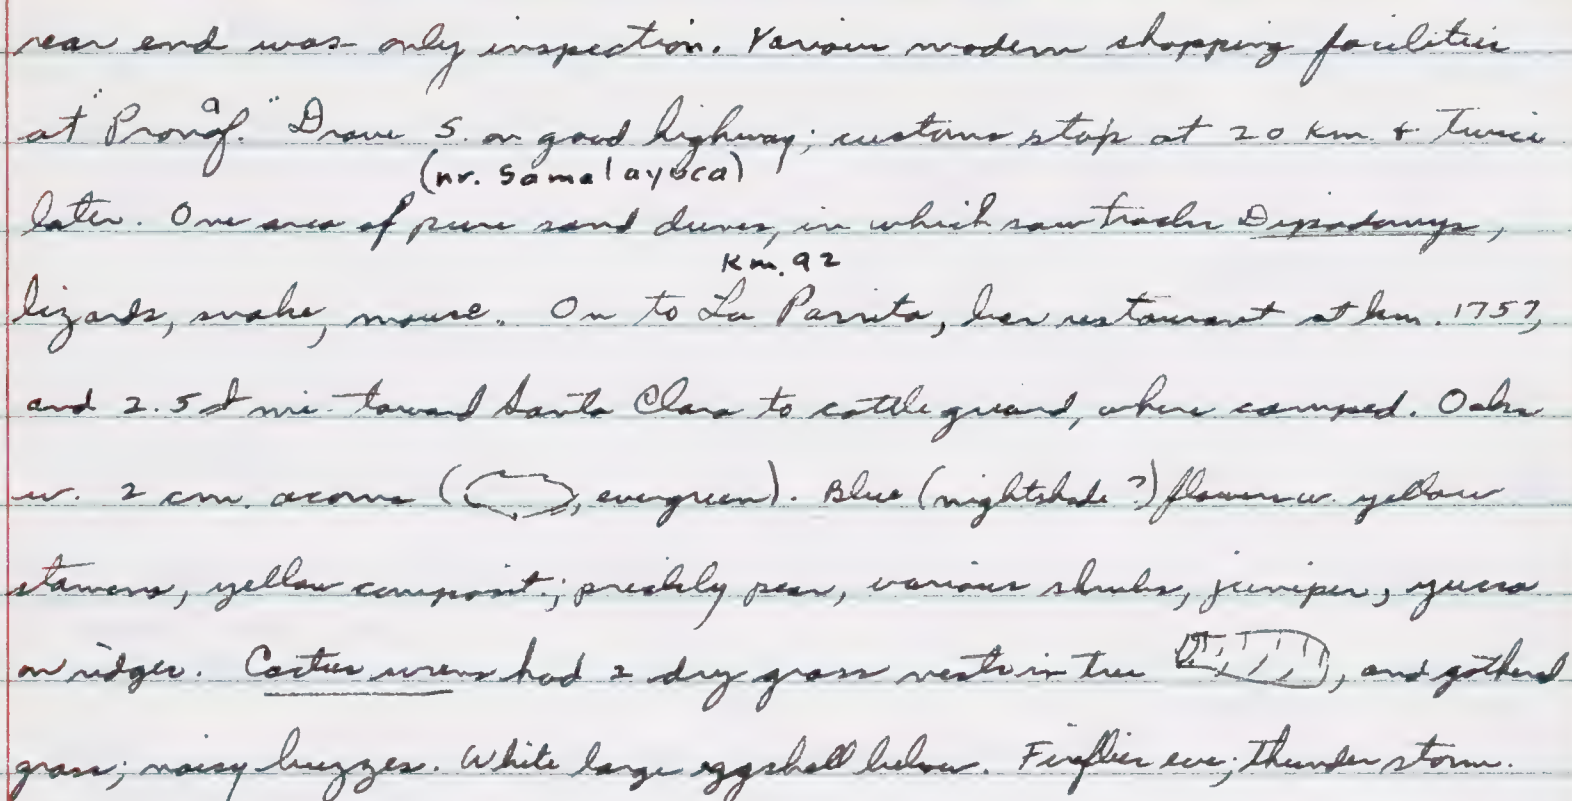 rear end was only inspection. Various modern shopping facilities
at "Pronaf." Drove S. on good highway; customs stop at 20 km. & twice
(nr. Samalayuca)
later. One area of pure sand dunes, in which saw tracks Dipodomys,
Km. 92
lizards, snake, mouse. On to La Parrita, restaurant at km. 1757,
and 2.5 mi toward Santa Clara to cattle guard, where camped. Oaks
w. 2 cm. acorns ( , evergreen). Blue (nightshade?) flowers w. yellow
stamens, yellow composit.; prickly pear, various shrubs, juniper, yucca
on ridges. Cactus wrens had 2 dry grass nests in tree , and gathered
grass; noisy buzzes. White large eggshell below. Fireflies eve; thunder storm.